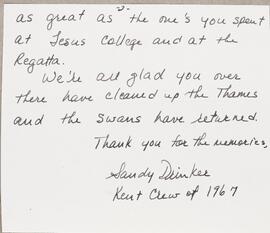 as great as the one's you spent
at Jesus College and at the
Regatta.
We're all glad you over
there have cleaned up the Thames
and the swans have returned.
Thank you for the memories,
Sandy Drinker
Kent Crew of 1967